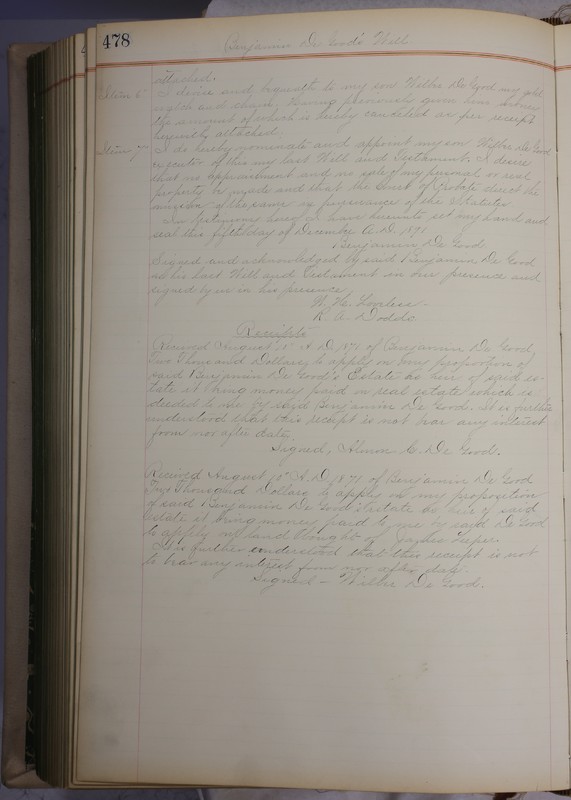 478
Benjamin De Good's Will
attached.
Item 6" I devise and bequeath to my son Wilbre De Good my gold
watch and chain, Having previously given him money
the amount of which is hereby cancelled as per receipt
hereunto attached.
Item 7" I do hereby nominate and appoint my son Wilbre De Good
executor of this my last Will and Testament. I desire
that no appraisment and no sale of my personal or real
property be made and that the Court of Probate direct the
omission of the same in pursuance of the Statutes
In testimony hereof I have hereunto set my hand and
seal this fifth day of December A.D. 1891
Benjamin De Good
Signed and acknowledged by said Benjamin De Good
as his last Will and Testament in our presence and
signed by us in his presence
W. H. Loveless
R. A. Dodds
Receipts
Received August 15" A D 1871 of Benjamin De Good,
Two Thousand Dollars, to apply on my proportion of
said Benjamin De Good's Estate as heir of said es-
tate it being money paid in real estate which is
deeded to me by said Benjamin De Good. It is further
understood that this receipt is not bear any interest
from nor after date,
Signed, C. De Good.
Received August 15" A.D. 1871 of Benjamin De Good
Two Thousand Dollars to apply on my proportion
of said Benjamin De Good's Estate as heir of said
Estate it being money paid to me by said De Good
to apply on land bought of James Leeper
It is further understood that this receipt is not
to bear any interest from nor after day.
Signed - Wilbre De Good.